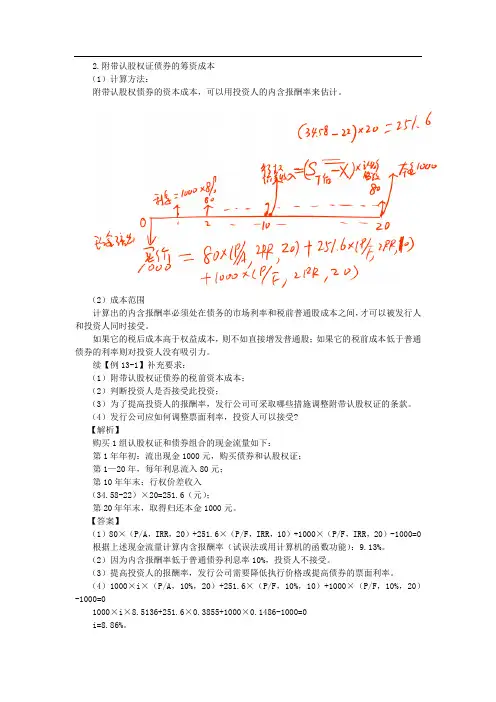 2.附带认股权证债券的筹资成本
（1）计算方法：
附带认股权债券的资本成本，可以用投资人的内含报酬率来估计。
(34.58-22)×20=251.6
=(S下后-X)×
80
本金1000
利息=1000×8%
80
0 1 2 -10- 20
买价
1000 = 80×(P/A, IRR, 20)+251.6×(P/F, IRR, 10)
+1000×(P/F, IRR, 20)
（2）成本范围
计算出的内含报酬率必须处在债务的市场利率和税前普通股成本之间，才可以被发行人
和投资人同时接受。
如果它的税后成本高于权益成本，则不如直接增发普通股；如果它的税前成本低于普通
债券的利率则对投资人没有吸引力。
续【例13-1】补充要求：
（1）附带认股权证债券的税前资本成本；
（2）判断投资人是否接受此投资；
（3）为了提高投资人的报酬率，发行公司可采取哪些措施调整附带认股权证的条款。
（4）发行公司应如何调整票面利率，投资人可以接受?
【解析】
购买1组认股权证和债券组合的现金流量如下：
第1年年初：流出现金1000元，购买债券和认股权证；
第1—20年，每年利息流入80元；
第10年年末：行权价差收入
（34.58-22）×20=251.6（元）；
第20年年末，取得归还本金1000元。
【答案】
（1）80×（P/A，IRR，20）+251.6×（P/F，IRR，10）+1000×（P/F，IRR，20）-1000=0
根据上述现金流量计算内含报酬率（试误法或用计算机的函数功能）：9.13%。
（2）因为内含报酬率低于普通债券利息率10%，投资人不接受。
（3）提高投资人的报酬率，发行公司需要降低执行价格或提高债券的票面利率。
（4）1000×i×（P/A，10%，20）+251.6×（P/F，10%，10）+1000×（P/F，10%，20）
-1000=0
1000×i×8.5136+251.6×0.3855+1000×0.1486-1000=0
i=8.86%。